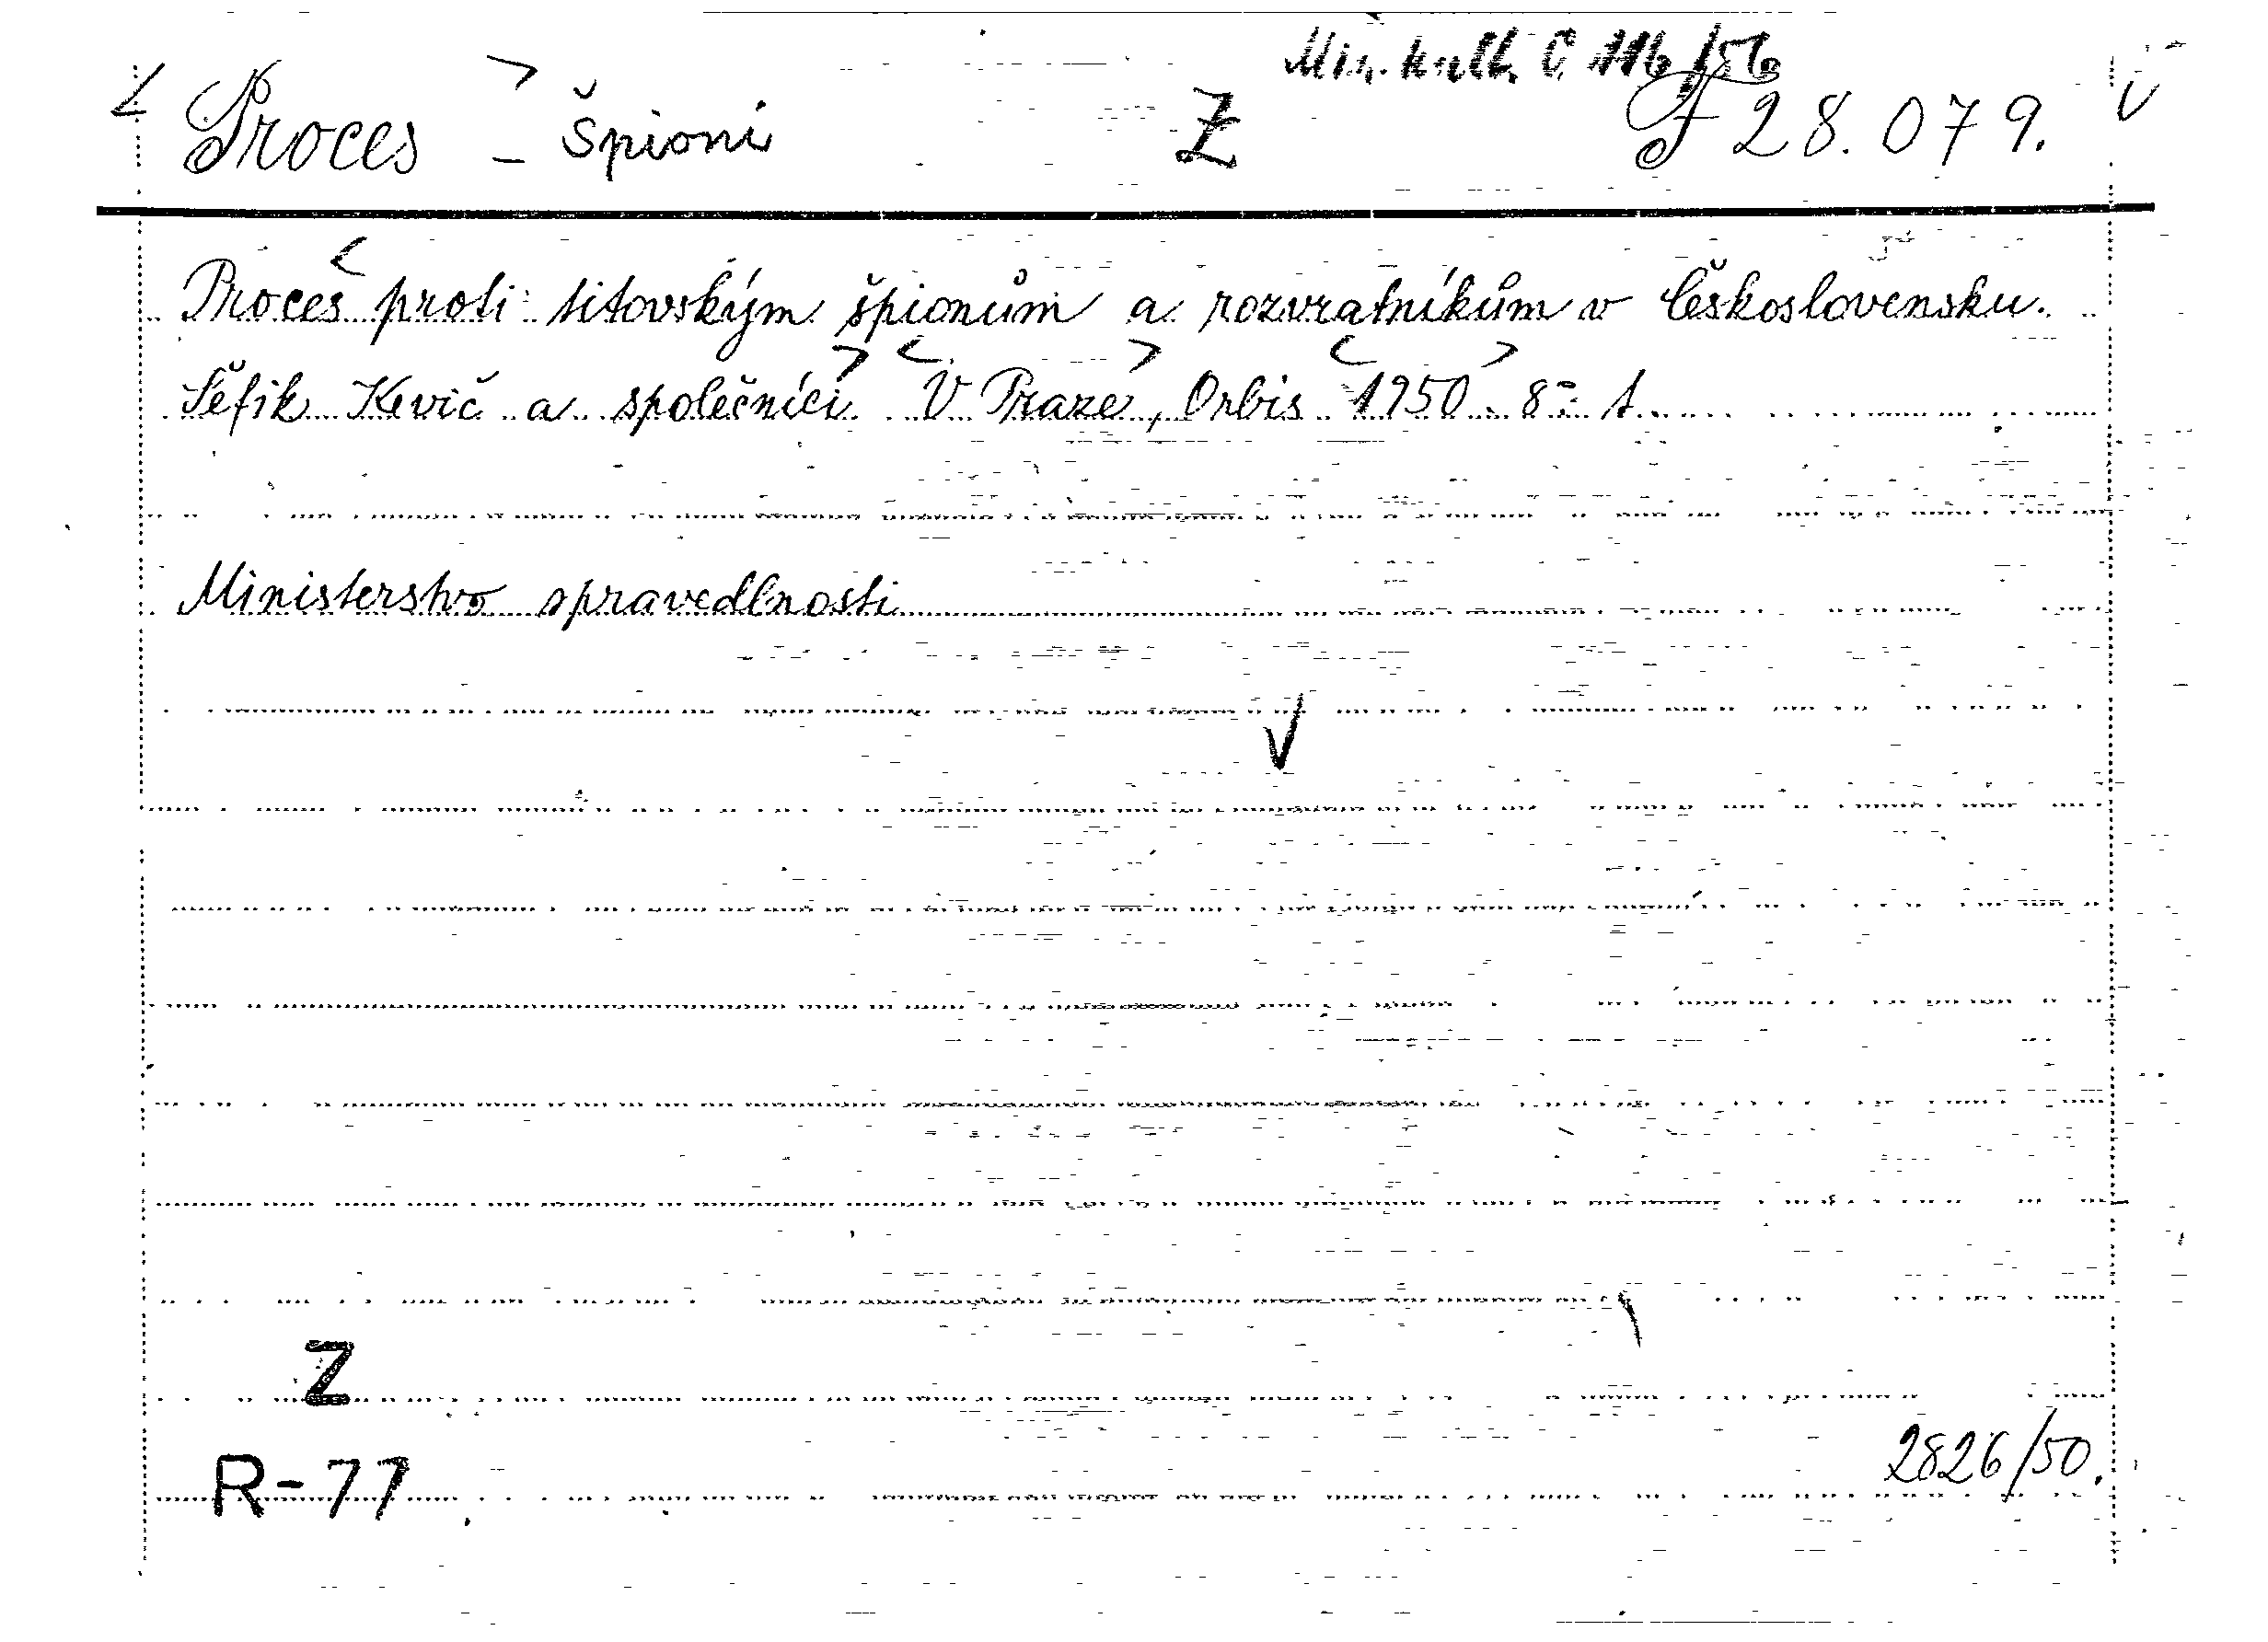 Min. kult. Č 116/56
Proces - špioni Z F 28.079.
Proces proti titovským špionům a rozvratníkům v Československu.
Šefik Kevič a společníci V Praze, Orbis 1950. 8° 1.
Ministerstvo spravedlnosti
Z
R-77
2826/50.